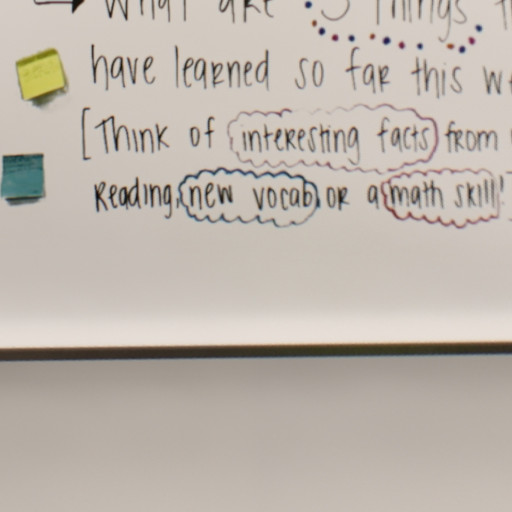 What are 3 Things
have learned so far this
[Think of interesting facts from
Reading, new vocab, or a math skill!]